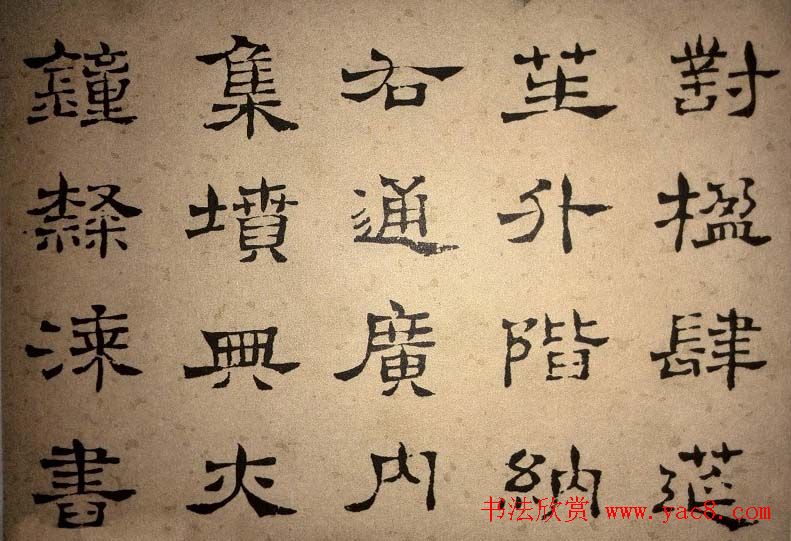 對楹肆筵
笙升階納
右通廣內
集墳典亦
鐘隸漆書
书法欣赏 www.yac8.com